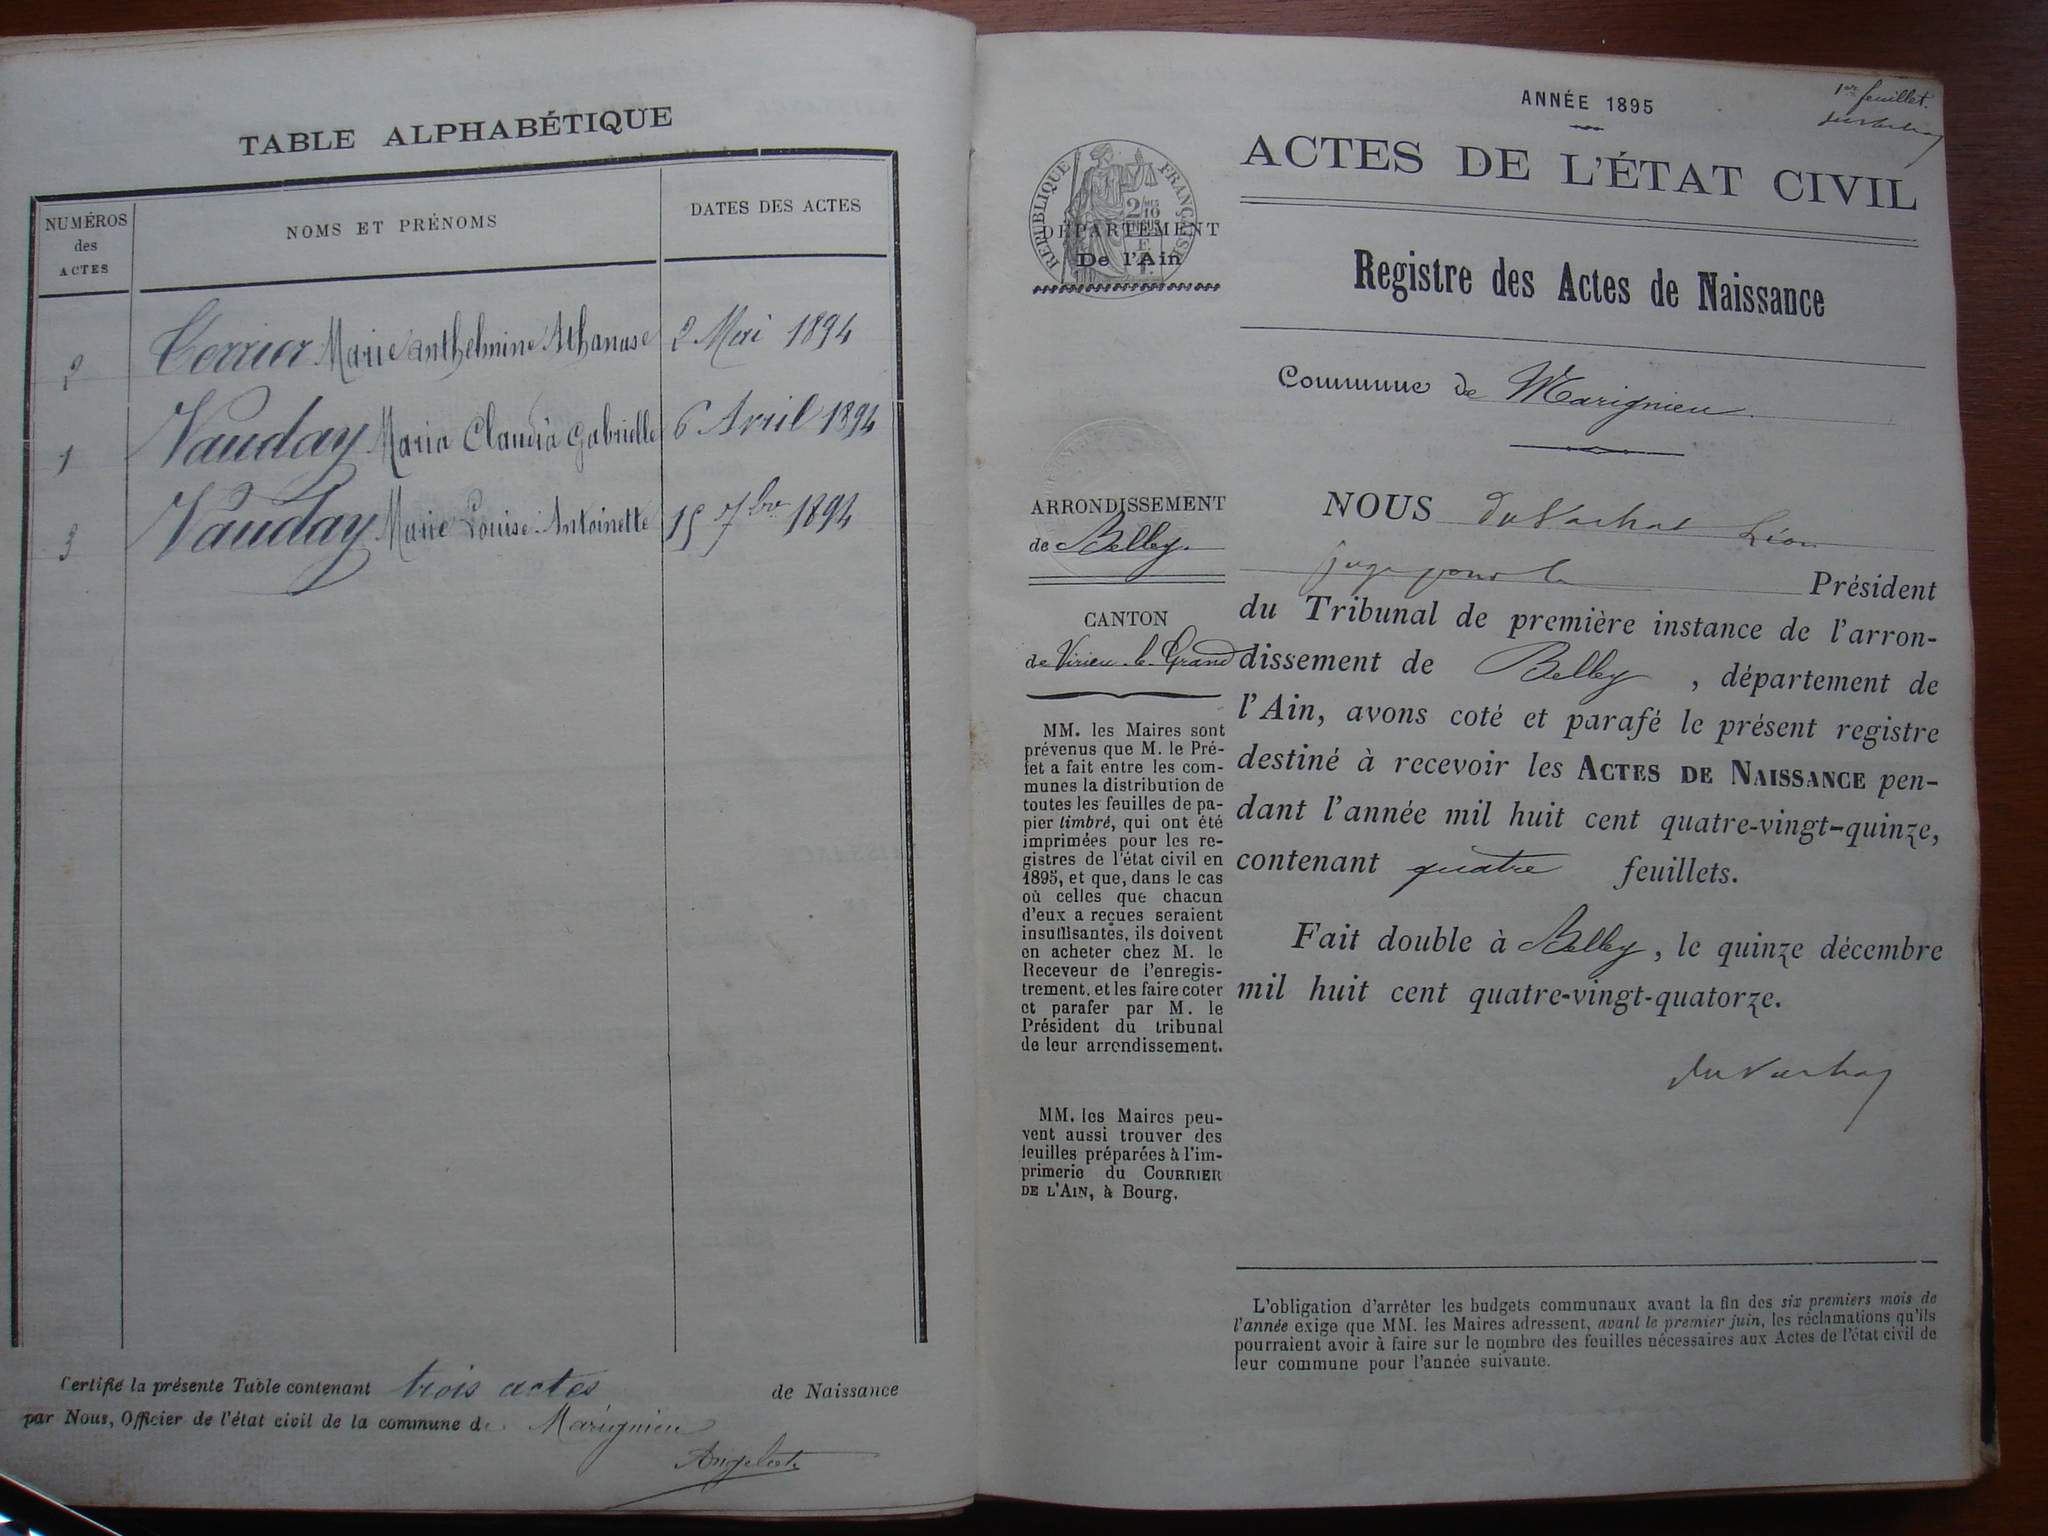 TABLE ALPHABÉTIQUE
NUMÉROS
des
ACTES
NOMS ET PRÉNOMS
DATES DES ACTES
2 Terrier Marie Anthelmine Athanase 2 Mai 1894
1 Vauday Maria Claudia Gabrielle 6 Avril 1894
3 Vauday Marie Louise Antoinette 15 7bre 1894
Certifié la présente Table contenant trois actes de Naissance
par Nous, Officier de l'état civil de la commune de Marignieu
1er feuillet.
ANNÉE 1895
ACTES DE L'ÉTAT CIVIL
RÉPUBLIQUE FRANÇAISE
2/10
DÉPARTEMENT
De l'Ain
Registre des Actes de Naissance
Commune de Marignieu
ARRONDISSEMENT
de Belley.
CANTON
de Virieu-le-Grand
MM. les Maires sont
prévenus que M. le Pré-
fet a fait entre les com-
munes la distribution de
toutes les feuilles de pa-
pier timbré, qui ont été
imprimées pour les re-
gistres de l'état civil en
1895, et que, dans le cas
où celles que chacun
d'eux a reçues seraient
insuffisantes, ils doivent
en acheter chez M. le
Receveur de l'enregis-
trement, et les faire coter
et parafer par M. le
Président du tribunal
de leur arrondissement.
MM. les Maires peu-
vent aussi trouver des
feuilles préparées à l'im-
primerie du COURRIER
DE L'AIN, à Bourg.
NOUS du Vachat Léon
juge pour le Président
du Tribunal de première instance de l'arron-
dissement de Belley, département de
l'Ain, avons coté et parafé le présent registre
destiné à recevoir les ACTES DE NAISSANCE pen-
dant l'année mil huit cent quatre-vingt-quinze,
contenant quatre feuillets.
Fait double à Belley, le quinze décembre
mil huit cent quatre-vingt-quatorze.
du Vachat
L'obligation d'arrêter les budgets communaux avant la fin des six premiers mois de
l'année exige que MM. les Maires adressent, avant le premier juin, les réclamations qu'ils
pourraient avoir à faire sur le nombre des feuilles nécessaires aux Actes de l'état civil de
leur commune pour l'année suivante.